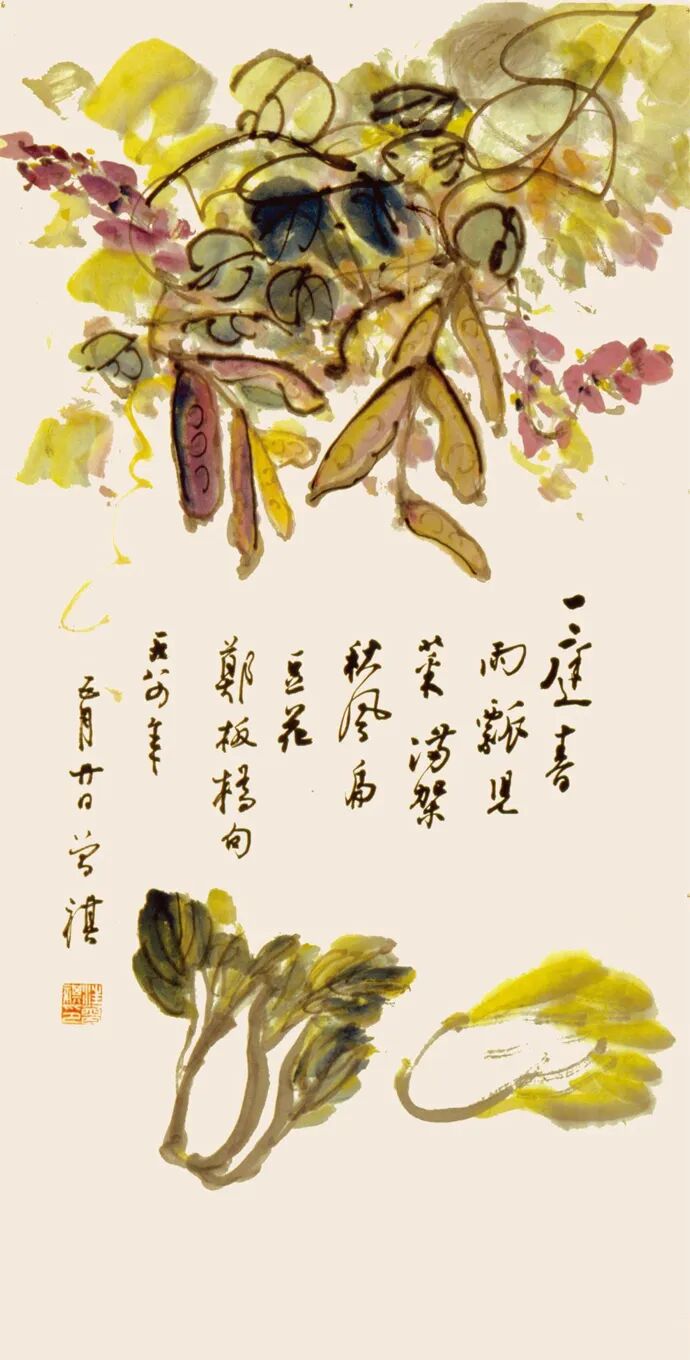 一庭春
雨瓢兒
菜滿架
秋風扁
豆花
鄭板橋句
年
五月廿日曾祺